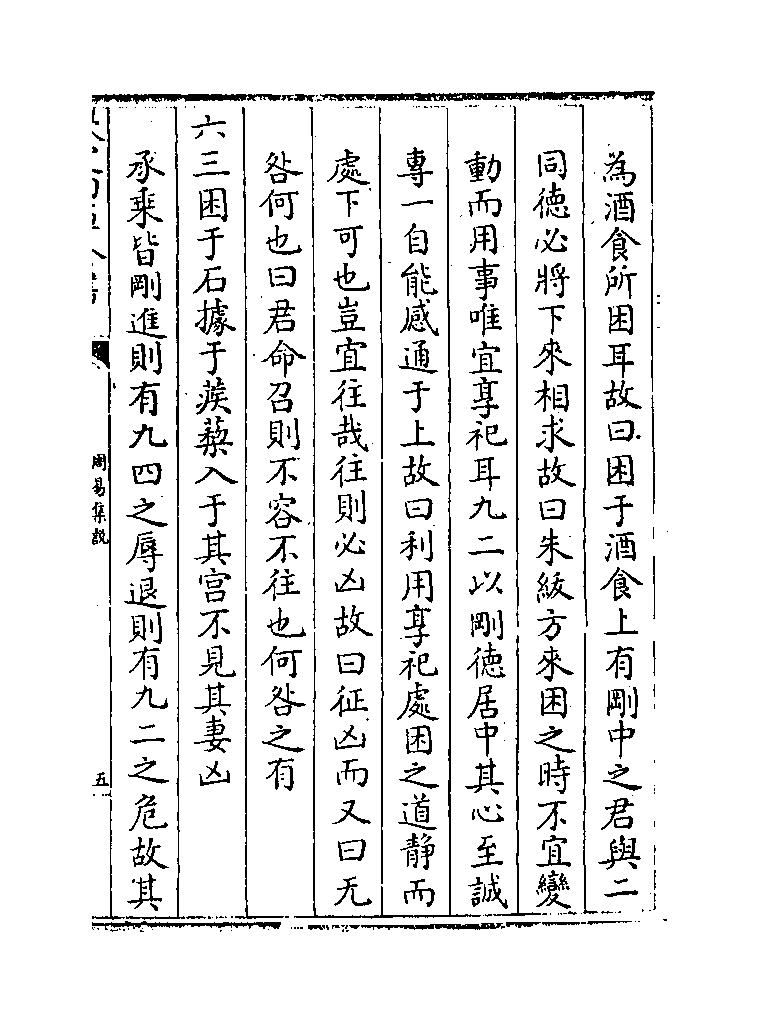 為酒食所困耳故曰困于酒食上有剛中之君與二
同德必將下來相求故曰朱紱方來困之時不宜變
動而用事唯宜享祀耳九二以剛德居中其心至誠
專一自能感通于上故曰利用享祀處困之道靜而
處下可也豈宜往哉往則必凶故曰征凶而又曰无
咎何也曰君命召則不容不往也何咎之有
六三困于石據于蒺蔾入于其宫不見其妻凶
承乗皆剛進則有九四之辱退則有九二之危故其
周易集説
五